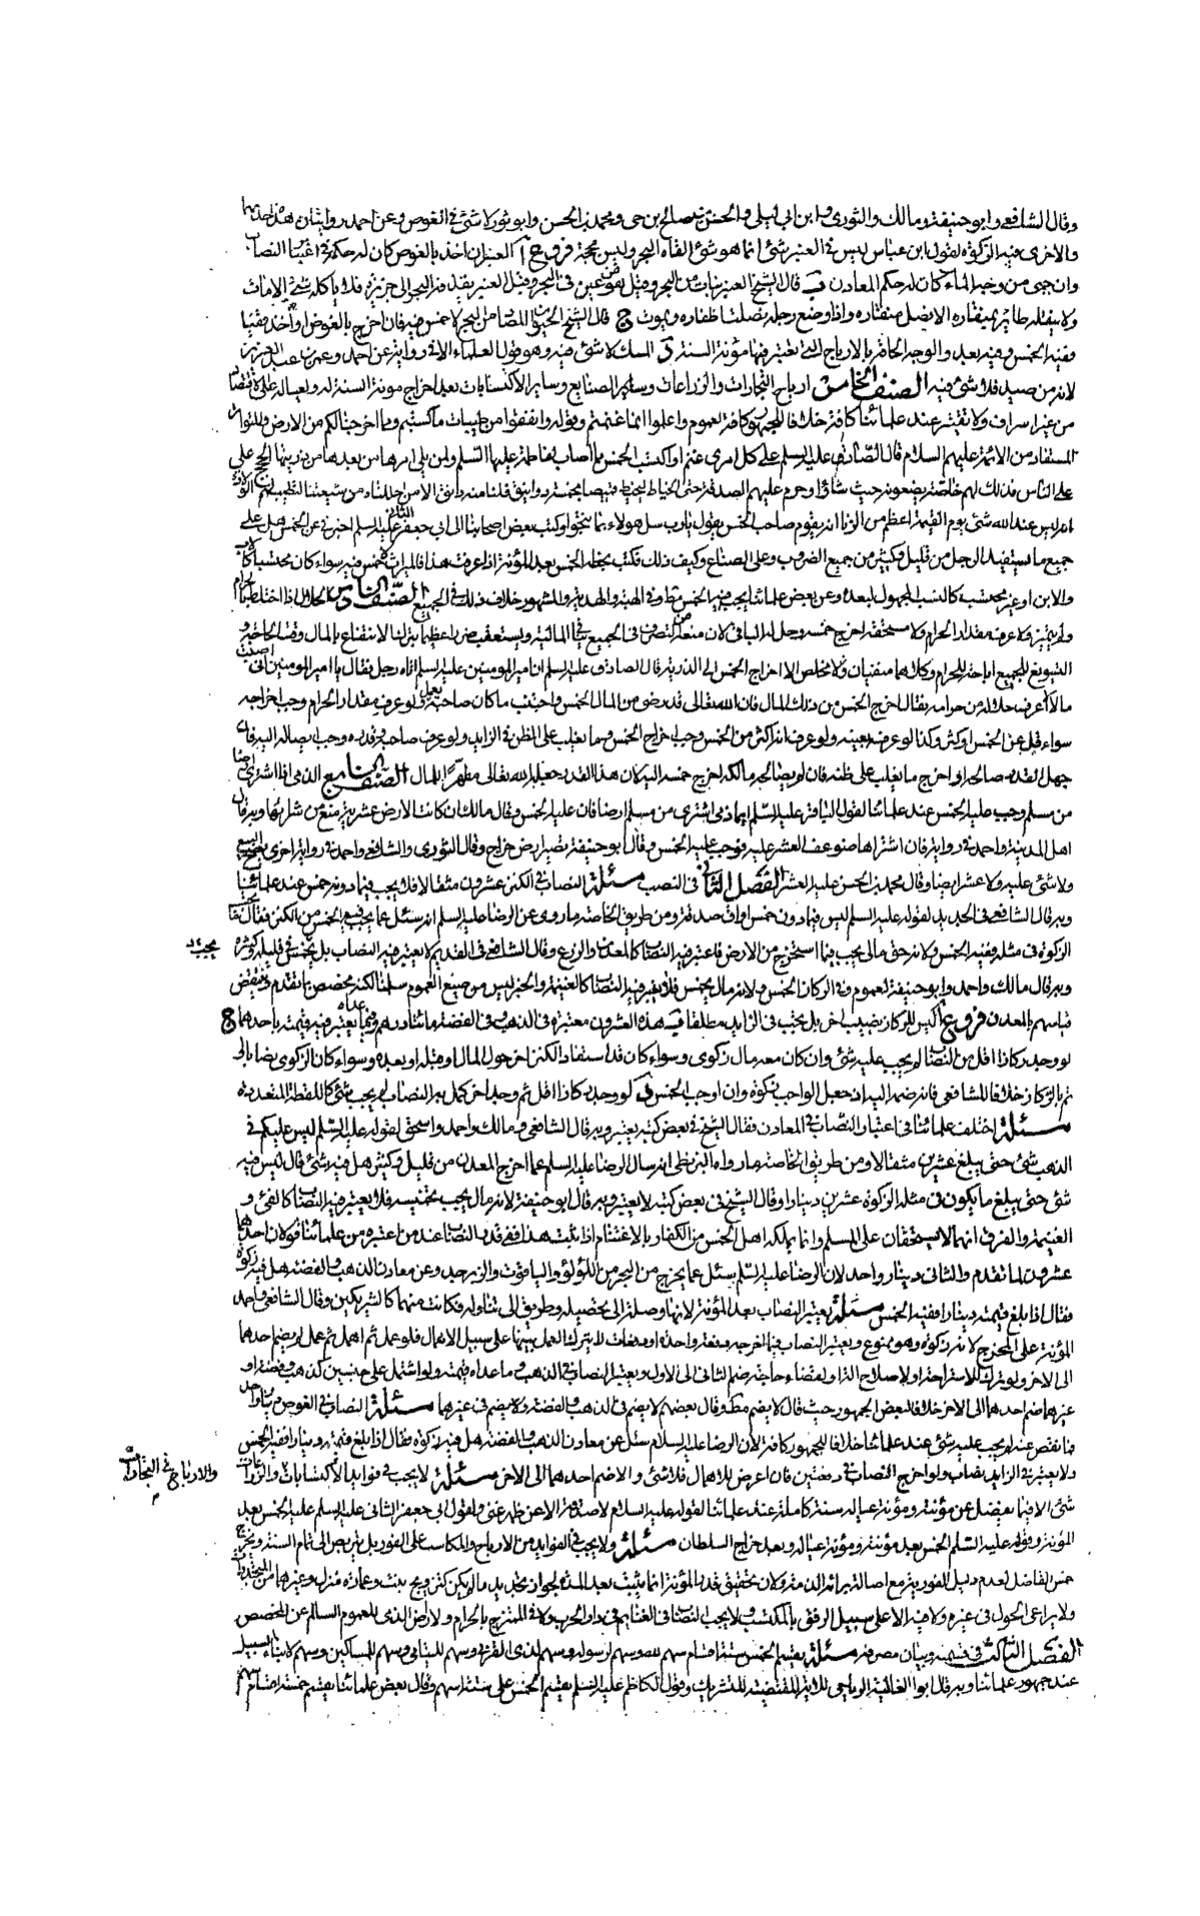 وقال الشافعي وابو حنيفة ومالك والثوري وابن ابي ليلى والحسن بن صالح بن حي ومحمد بن الحسن وابو ثور لا شئ في الغوص وعن احمد روايتان هذا احديهما
والاخرى فيه الزكوة لقول ابن عباس ليس في العنبر شئ انما هو شئ القاه البحر وليس بحجة فروع آ العنبر ان اخذ بالغوص كان له حكمه في اعتبار النصاب
وان جبى من وجه الماء كان له حكم المعادن ب قال الشيخ العنبر نبات من البحر وقيل هو من عين في البحر وقيل العنبر يقذفه البحر الى جزيرة فلا ياكله شئ الا مات
ولا ينقله طائر بمنقاره الا نصل منقاره واذا وضع رجله نصلت اظفاره ويموت ج قال الشيخ الحيوان المصاد من البحر لا خمس فيه فان اخرج بالغوص او اخذ قفيا
ففيه الخمس وفيه بعد والوجه الحاقه بالارباح التي تعتبر فيها مؤنة السنة د السمك لا شئ فيه وهو قول العلماء الا في رواية عن احمد وعمر بن عبد العزيز
لانه من صيد فلا شئ فيه الصنف الخامس ارباح التجارات والزراعات وساير الصنايع وساير الاكتسابات بعد اخراج مونة السنة له ولعياله على الاقتصاد
من غير اسراف ولا تقتير عند علمائنا كافة خلافا للجمهور كافة لعموم واعلموا انما غنمتم وقوله وانفقوا من طيبات ما كسبتم ومما اخرجنا لكم من الارض وللتواتر
المستفاد من الائمة عليهم السلام قال الصادق عليه السلم على كل امرئ غنم او اكتسب الخمس مما اصاب لفاطمة عليها السلم ولمن يلى امرها من بعدها من ذريتها الحجج على
على الناس فذلك لهم خاصة يضعونه حيث شاؤا وحرم عليهم الصدقة حتى الخياط ليخيط قميصا بخمسة دوانيق فلنا منه دانق الا من احللناه من شيعتنا لتطيب لهم الولادة
انه ليس عند الله شئ يوم القيمة اعظم من الزنا انه يقوم صاحب الخمس يقول يا رب سل هولاء بما نكحوا وكتب بعض اصحابنا الى ابي جعفر الثاني عليه السلم اخبرني عن الخمس هل على
جميع ما يستفيد الرجل من قليل وكثير من جميع الضروب وعلى الصناع وكيف ذلك فكتب بخطه الخمس بعد المؤنة اذا عرفت هذا فالميراث لا خمس فيه سواء كان محتسبا كالاب
والابن او غير محتسب كالنسب المجهول لبعده وعن بعض علمائنا يجب فيه الخمس وفي الهبة والهدية والمشهور خلاف ذلك في الجميع الصنف السادس الحلال اذا اختلط بالحرام
ولم يتميز ولا عرف مقدار الحرام ولا مستحقه اخرج خمسه وحل له الباقي لان منعه من التصرف في الجميع ينافي المالية ويستعقب ضررا عظيما بترك الانتفاع بالمال وقت الحاجة و
التسويغ للجميع اباحة للحرام وكلاهما منفيان ولا مخلص الا اخراج الخمس الى الذرية قال الصادق عليه السلم ان امير المومنين عليه السلم اتاه رجل فقال يا امير المومنين اني اصبت
مالا لا اعرف حلاله من حرامه فقال اخرج الخمس من ذلك المال فان الله تعالى قد رضى من المال الخمس واجتنب ما كان صاحبه يعمل ولو عرف مقدار الحرام وجب اخراجه
سواء قل عن الخمس او كثر وكذا لو عرفه بعينه ولو عرف انه اكثر من الخمس وجب اخراج الخمس وما يغلب على الظن في الزايد ولو عرف صاحبه وقدره وجب ايصاله اليه فان
جهل القدر صالحه او اخرج ما يغلب على ظنه فان لم يصالحه مالكه اخرج خمسه اليه لان هذا القدر جعله الله تعالى مطهرا للمال الصنف السابع الذمي اذا اشترى ارضا
من مسلم وجب عليه الخمس عند علمائنا لقول الباقر عليه السلم ايما ذمي اشترى من مسلم ارضا فان عليه الخمس وقال مالك ان كانت الارض عشرية منع من شرائها وبه قال
اهل المدينة واحمد في رواية فان اشتراها ضوعف العشر عليه فوجب عليه الخمس وقال ابو حنيفة تصير ارض خراج وقال الثوري والشافعي واحمد في رواية اخرى يصح البيع
ولا شئ عليه ولا عشر ايضا وقال محمد بن الحسن عليه العشر الفصل الثاني في النصب مسئلة النصاب في الكنز عشرون مثقالا فلا يجب فيما دونه خمس عند علمائنا
وبه قال الشافعي في الجديد لقوله عليه السلم ليس فيما دون خمس اواق صدقة ومن طريق الخاصة ما روي عن الرضا عليه السلم انه سئل عما يجب فيه الخمس من الكنز فقال ما يجب
الزكوة في مثله ففيه الخمس ولانه حق مالي يجب فيما استخرج من الارض فاعتبر فيه النصاب كالمعدن والزرع وقال الشافعي في القديم لا يعتبر فيه النصاب بل يجب الخمس في قليله وكثيره
وبه قال مالك واحمد وابو حنيفة لعموم وفي الركاز الخمس ولانه مال يخمس فلا يعتبر فيه النصاب كالغنيمة والخبر ليس من صيغ العموم سلمنا لكنه مخصص بما تقدم ونقض
قياسهم بالمعدن فروع آ ليس للركاز نصيب اخر بل يجب في الزايد مطلقا ب هذه العشرون معتبرة في الذهب وفي الفضة ماتا درهم وفيما عداه يعتبر فيه قيمته باحدهما ج
لو وجد ركازا اقل من النصاب لم يجب عليه شئ وان كان معه مال زكوي وسواء كان قد استفاد الكنز اخر حول المال او قبله او بعده وسواء كان الزكوي نصابا او
تم بالركاز خلافا للشافعي فانه ضمه اليه ان جعل الواجب زكوة وان اوجب الخمس د لو وجد ركازا اقل ثم وجد اخر كمل به النصاب لم يجب شئ كاللقطة المتعددة
مسئلة اختلف علمائنا في اعتبار النصاب في المعادن فقال الشيخ في بعض كتبه يعتبر وبه قال الشافعي ومالك واحمد واسحق لقوله عليه السلم ليس عليكم في
الذهب شئ حتى يبلغ عشرين مثقالا ومن طريق الخاصة ما رواه البزنطي انه سال الرضا عليه السلم عما اخرج المعدن من قليل وكثير هل فيه شئ قال ليس فيه
شئ حتى يبلغ ما يكون في مثله الزكوة عشرين دينارا وقال الشيخ في بعض كتبه لا يعتبر وبه قال ابو حنيفة لانه مال يجب تخميسه فلا يعتبر فيه النصاب كالفئ و
الغنيمة والفرق انهما لا يستحقان على المسلم وانما يملكه اهل الخمس من الكفار بالاغتنام اذا ثبت هذا ففي قدر النصاب عند من اعتبره من علمائنا قولان احدهما
عشرون لما تقدم والثاني دينار واحد لان الرضا عليه السلم سئل عما يخرج من البحر من اللؤلؤ والياقوت والزبرجد وعن معادن الذهب والفضة هل فيه زكوة
فقال اذا بلغ قيمته دينارا ففيه الخمس مسئلة يعتبر النصاب بعد المؤنة لانها وصلة الى تحصيله وطريق الى تناوله فكانت منهما كالشريكين وقال الشافعي واحمد
المؤنة على المخرج لانه زكوة وهو ممنوع ويعتبر النصاب فيما اخرجه دفعة واحدة او دفعات لا يترك العمل بينها على سبيل الاهمال فلو عمل ثم اهمل ثم عمل لم يضم احدهما
الى الاخر ولو ترك للاستراحة او لاصلاح الة او لقضاء حاجة ضم الثاني الى الاول ويعتبر النصاب في الذهب وما عداه قيمته ولو اشتمل على جنسين كذهب وفضة او
غيرهما ضم احدهما الى الاخر خلافا لبعض الجمهور حيث قال لا يضم مطلقا وقال بعضهم لا يضم في الذهب والفضة ويضم في غيرهما مسئلة النصاب في الغوص دينار واحد
فما نقص عنه لم يجب عليه شئ عند علمائنا خلافا للجمهور كافة لان الرضا عليه السلام سئل عن معادن الذهب والفضة هل فيه زكوة فقال اذا بلغ قيمته دينارا ففيه الخمس
ولا يعتبر في الزايد نصاب ولو اخرج النصاب في دفعتين فان اعرض للاهمال فلا شئ والا ضم احدهما الى الاخر مسئلة لا يجب في فوايد الاكتسابات والزراعات
شئ الا فيما يفضل عن مؤنته ومؤنة عياله سنة كاملة عند علمائنا لقوله عليه السلام لا صدقة الا عن ظهر غنى ولقول ابي جعفر الثاني عليه السلم عليه الخمس بعد
المؤنة وقوله عليه السلم الخمس بعد مؤنته ومؤنة عياله وبعد خراج السلطان مسئلة ولا يجب في الفوايد من الارباح والمكاسب على الفور بل يتربص الى تمام السنة ويخرج
خمس الفاضل لعدم دليل الفورية مع اصالة براءة الذمة ولان تحقيق قدر المؤنة انما يثبت بعد المدة لجواز تجديد ما لم يكن كتزويج بنت وعمارة منزل وغيرهما من المتجددات
ولا يراعى الحول في غيره ولا فيه الا على سبيل الرفق بالمكتسب ولا يجب النصاب في الغنايم في دار الحرب ولا في الممتزج بالحرام ولا ارض الذمي للعموم السالم عن المخصص
الفصل الثالث في قسمته وبيان مصرفه مسئلة يقسم الخمس ستة اقسام سهم لله وسهم لرسوله وسهم لذي القربى وسهم لليتامى وسهم للمساكين وسهم لابناء السبيل
عند جمهور علمائنا وبه قال ابو العالية الرياحي للاية المقتضية للتشريك وقول الكاظم عليه السلم يقسم الخمس على ستة اسهم وقال بعض علمائنا يقسم خمسة اقسام سهم
والارباح في التجارات